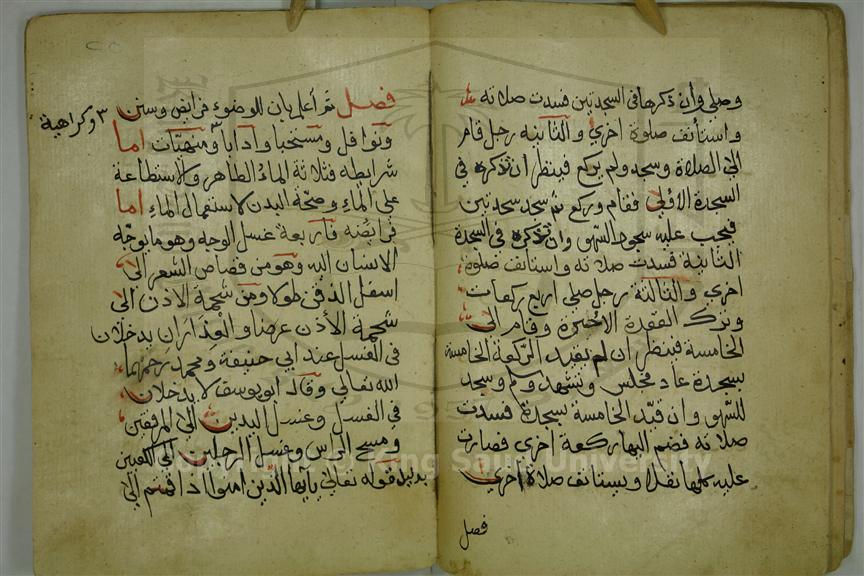 وصلي وان ذكرها في السجدتين فسدت صلاته
واستأنف صلوة اخري والثانية رجل قام
الي الصلاة وسجد ولم يركع فينظر ان تذكره في
السجدة الاولي فقام وركع ثم سجد سجدتين
فيجب عليه سجود السهو وان تذكره في السجدة
الثانية فسدت صلاته واستانف صلوة
اخري والثالثة رجل صلي اربع ركعات
وترك القعدة الاخيرة وقام الي
الخامسة فينظر ان لم يقيد الركعة الخامسة
بسجدة عاد وجلس وتشهد وسلم وسجد
للسهو وان قيد الخامسة بسجدة فسدت
صلاته فضم اليها ركعة اخري فصارت
عليه كلها نفلا ويستانف صلاة اخري
فصل
فصل ثم اعلم بان للوضوء فرايض وسنن
٣ وكراهية
ونوافل ومستحبا وادابا ومنهيات اما
شرايطه فثلاثة الماء الطاهر والاستطاعة
علي الماء وصحة البدن لاستعمال الماء اما
فرايضه فاربعة غسل الوجه وهو ما يوجه
الانسان اليه وهو من قصاص الشعر الي
اسفل الذقن طولا ومن شحمة الاذن الي
شحمة الأذن عرضا والعذاران يدخلان
في الغسل عند ابي حنيفة ومحمد رحمهما
الله تعالي وقال ابو يوسف لا يدخلان
في الغسل وغسل اليدين الي المرفقين
ومسح الراس وغسل الرجلين الي الكعبين
بدليل قوله تعالي يا أيها الذين امنوا اذا قمتم الي
King Saud University